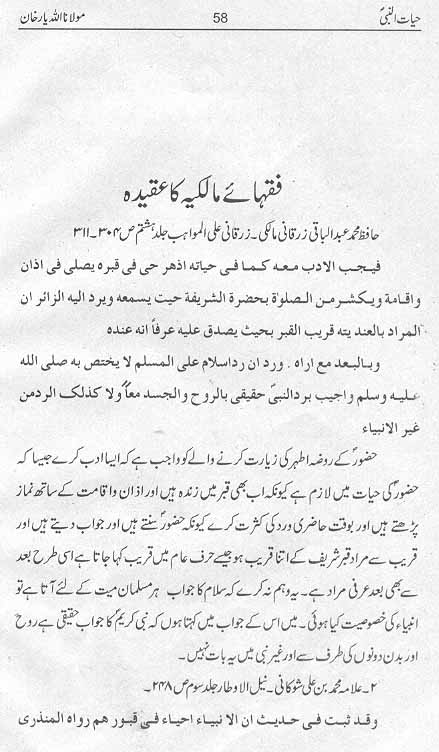 حیات النبیؐ 58 مولانا اللہ یار خان
فقہائے مالکیہ کا عقیدہ
حافظ محمد عبدالباقی زرقانی مالکی۔ زرقانی علی المواہب جلد ہشتم ص ۳۰۴۔۳۱۱
فیجب الادب معه کما فی حیاته اذهر حی فی قبره یصلی فی اذان
واقامة ویکشر من الصلوٰة بحضرة الشریفة حیث یسمعه ویرد الیه الزائر ان
المراد بالعندیته قریب القبر بحیث یصدق علیه عرفاً انه عنده
وبالبعد مع اراه . ورد ان رد اسلام علی المسلم لا یختص به صلی الله
علیه وسلم واجیب بردالنبیؐ حقیقی بالروح والجسد معاً ولا کذلک الرد من
غیر الانبیاء
حضورؐ کے روضہ اطہر کی زیارت کرنے والے کو واجب ہے کہ ایسا ادب کرے جیسا کہ
حضورؐ کی حیات میں لازم ہے کیونکہ اب بھی قبر میں زندہ ہیں اور اذان و اقامت کے ساتھ نماز
پڑھتے ہیں اور بوقت حاضری ورد کی کثرت کرے کیونکہ حضورؐ سنتے ہیں اور جواب دیتے ہیں اور
قریب سے مراد قبر شریف کے اتنا قریب ہو جیسے حرف عام میں قریب کہا جاتا ہے اسی طرح بعد
سے بھی بعد عرفی مراد ہے۔ یہ وہم نہ کرے کہ سلام کا جواب ہر مسلمان میت کے لئے آتا ہے تو
انبیاء کی خصوصیت کیا ہوئی۔ میں اس کے جواب میں کہتا ہوں کہ نبی کریمؐ کا جواب حقیقی ہے روح
اور بدن دونوں کی طرف سے اور غیر نبی میں یہ بات نہیں۔
۲۔ علامہ محمد بن علی شوکانی۔ نیل الاوطار جلد سوم ص ۲۴۸۔
وقد ثبت فی حدیث ان الا نبیاء احیاء فی قبور هم رواه المنذری